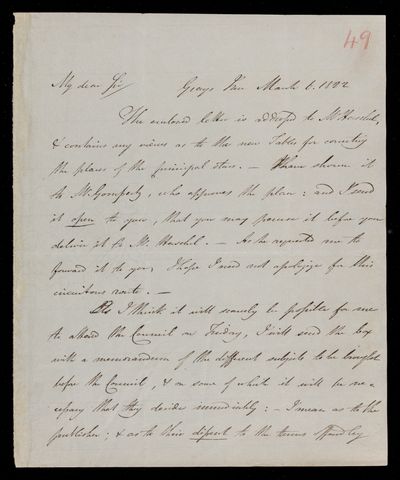 49
My dear Sir Grays Inn March 6. 1822
The enclosed letter is addressed to Mr Herschel,
& contains my views as to the new Tables for correcting
the places of the principal stars. — I have shown it
to Mr. Gompertz, who approves the plan: and I send
it open to you, that you may peruse it before you
deliver it to Mr. Herschel. — As he requested me to
forward it to you, I hope I need not apologize for this
circuitous route. —
As I think it will scarcely be possible for me
to attend the Council on Friday, I will send the box
with a memorandum of the different subjects to be brought
before the Council, & on some of which it will be ne=
cessary that they decide immediately: — I mean as to the
publisher; & as to their dissent to the terms offered by